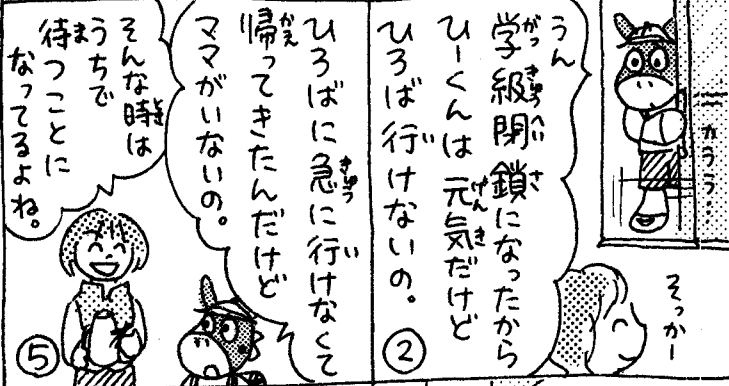 カララ…
うん
学級閉鎖になったから
ひーくんは元気だけど
ひろば行けないの。
そっかー
②
ひろばに急に行けなくて
帰ってきたんだけど
ママがいないの。
そんな時は
うちで
待つことに
なってるよね。
⑤